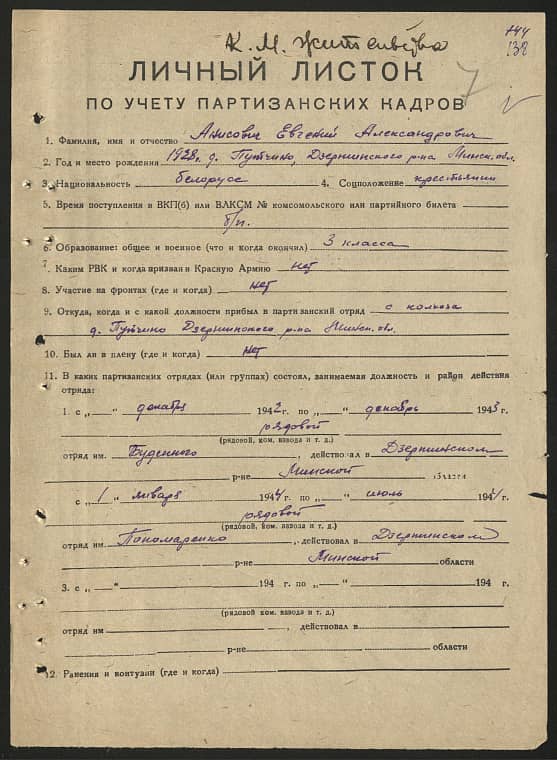 К. М. жительства
744
132
7
ЛИЧНЫЙ ЛИСТОК
ПО УЧЕТУ ПАРТИЗАНСКИХ КАДРОВ
1. Фамилия, имя и отчество Анисович Евгений Александрович
2. Год и место рождения 1928, д. Путчино, Дзержинского р-на Минск. обл.
3. Национальность белорусс 4. Соцположение крестьянин
5. Время поступления в ВКП(б) или ВЛКСМ № комсомольского или партийного билета
б/п.
6. Образование: общее и военное (что и когда окончил) 3 класса
7. Каким РВК и когда призван в Красную Армию нет
8. Участие на фронтах (где и когда) нет
9. Откуда, когда и с какой должности прибыл в партизанский отряд с колхоза
д. Путчино Дзержинского р-на Минск. обл.
10. Был ли в плену (где и когда) нет
11. В каких партизанских отрядах (или группах) состоял, занимаемая должность и район действия
отряда:
1. с „ “ декабря 1942 г. по „ “ декабрь 1943 г.
рядовой
(рядовой, ком. взвода и т. д.)
отряд им. Буденного, действовал в Дзержинском
р-не Минской области
с „1“ января 1944 г. по „ “ июль 1944 г.
рядовой
(рядовой, ком. взвода и т. д.)
отряд им. Пономаренко, действовал в Дзержинском
р-не Минской области
3. с „ “ 194 г. по „ “ 194 г.
(рядовой ком. взвода и т. д.)
отряд им , действовал в
р-не области
12. Ранения и контузии (где и когда)